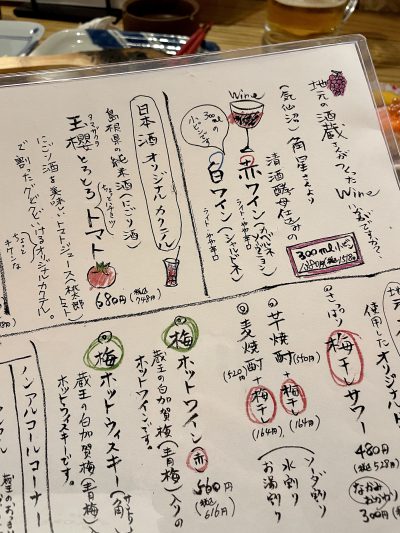 地元の酒蔵さんがつくったWine
(気仙沼) 角星さんより
清酒酵母仕込みの
300ml
Wine
赤ワイン
白ワイン(シャルドネ)
ライト・やや辛口
300mlの
日本酒オリジナルカクテル
島根県の純米酒(にごり酒)
玉櫻とろとろトマト
タマザクラ
にごり酒を美味しいトマトジュース
で割ったグビグビいけるオリジナルカクテル。
680円(税込748円)
使用したオリジナル
◎さっぱり梅干しサワー
480円
(税込528円)
なかみおかわり
300円
◎芋焼酎(550円)+梅干し(164円)
◎麦焼酎(520円)+梅干し(164円)
ソーダ割り
水割り
お湯割り
◎梅ホットワイン赤
560円
(税込616円)
蔵王の白加賀梅(青梅)入りの
ホットワインです。
◎梅ホットウィスキー(角)
蔵王の白加賀梅(青梅)入
ホットウィスキーです。
ノンアルコールコーナー